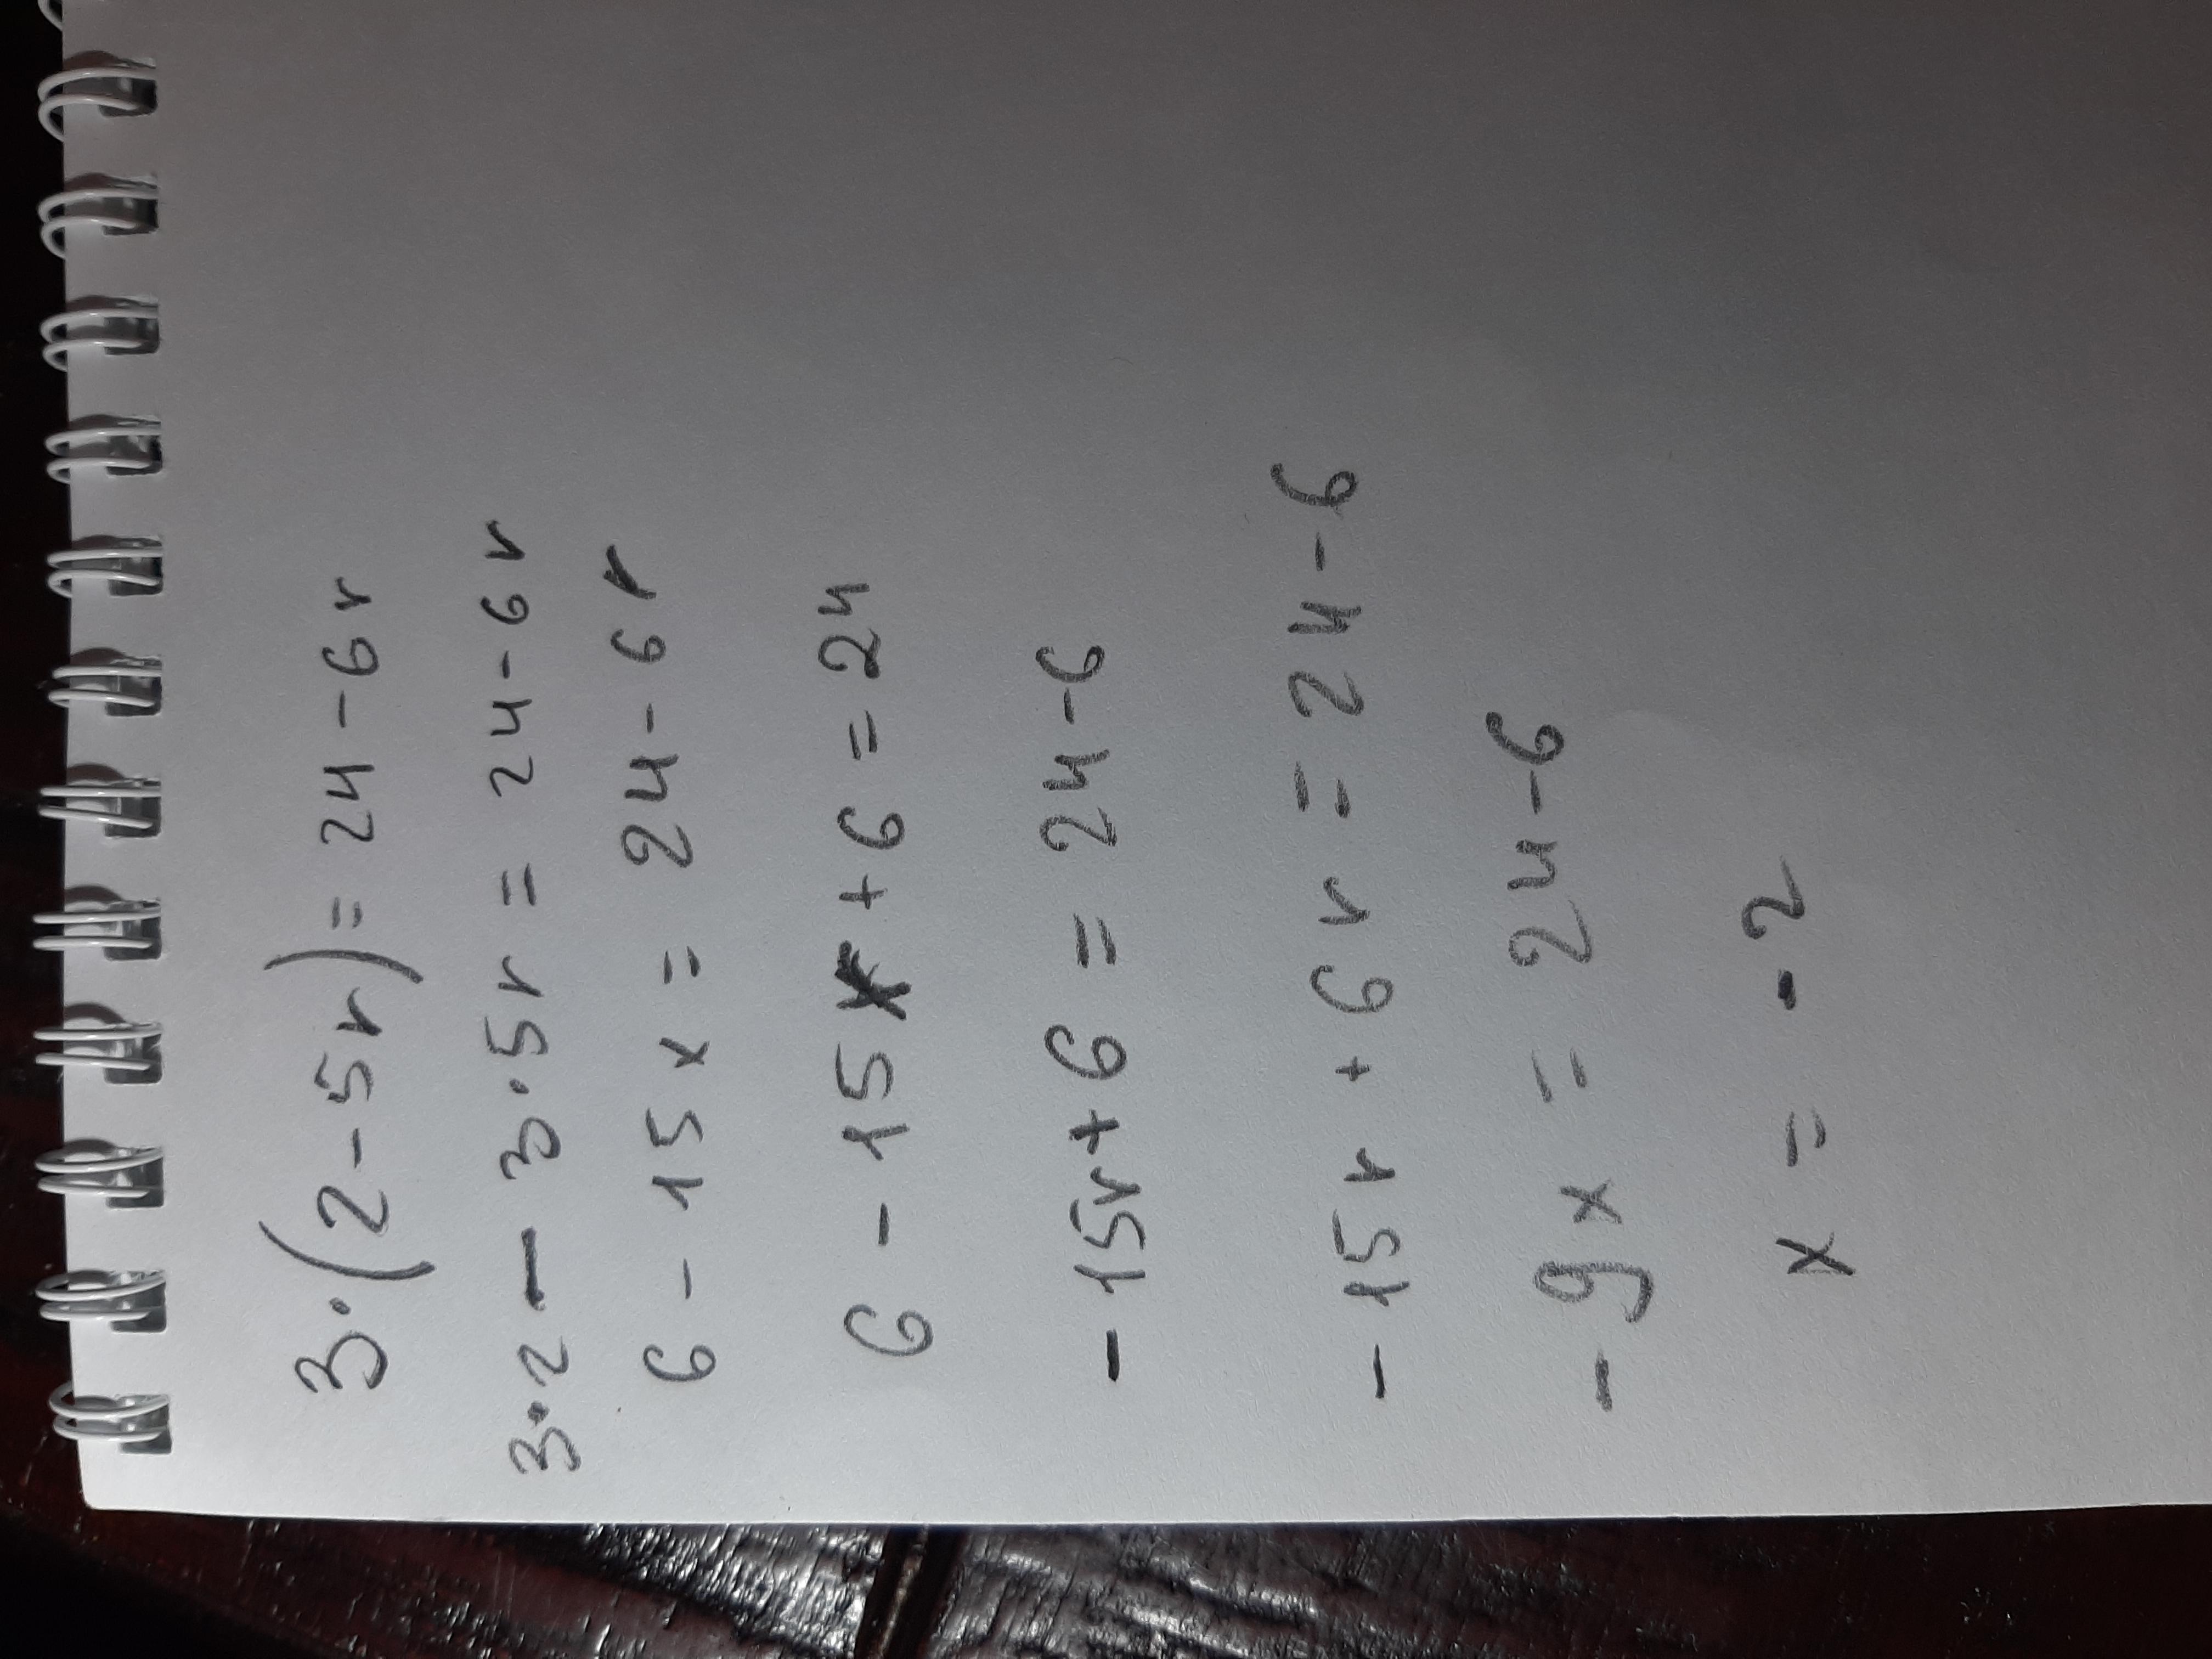 3·(2-5r)=24-6r
3·2-3·5r=24-6r
6-15x=24-6r
6-15x+6=24
-15r+6=24-6
-15r+6r=24-6
-9x=24-6
x=-2